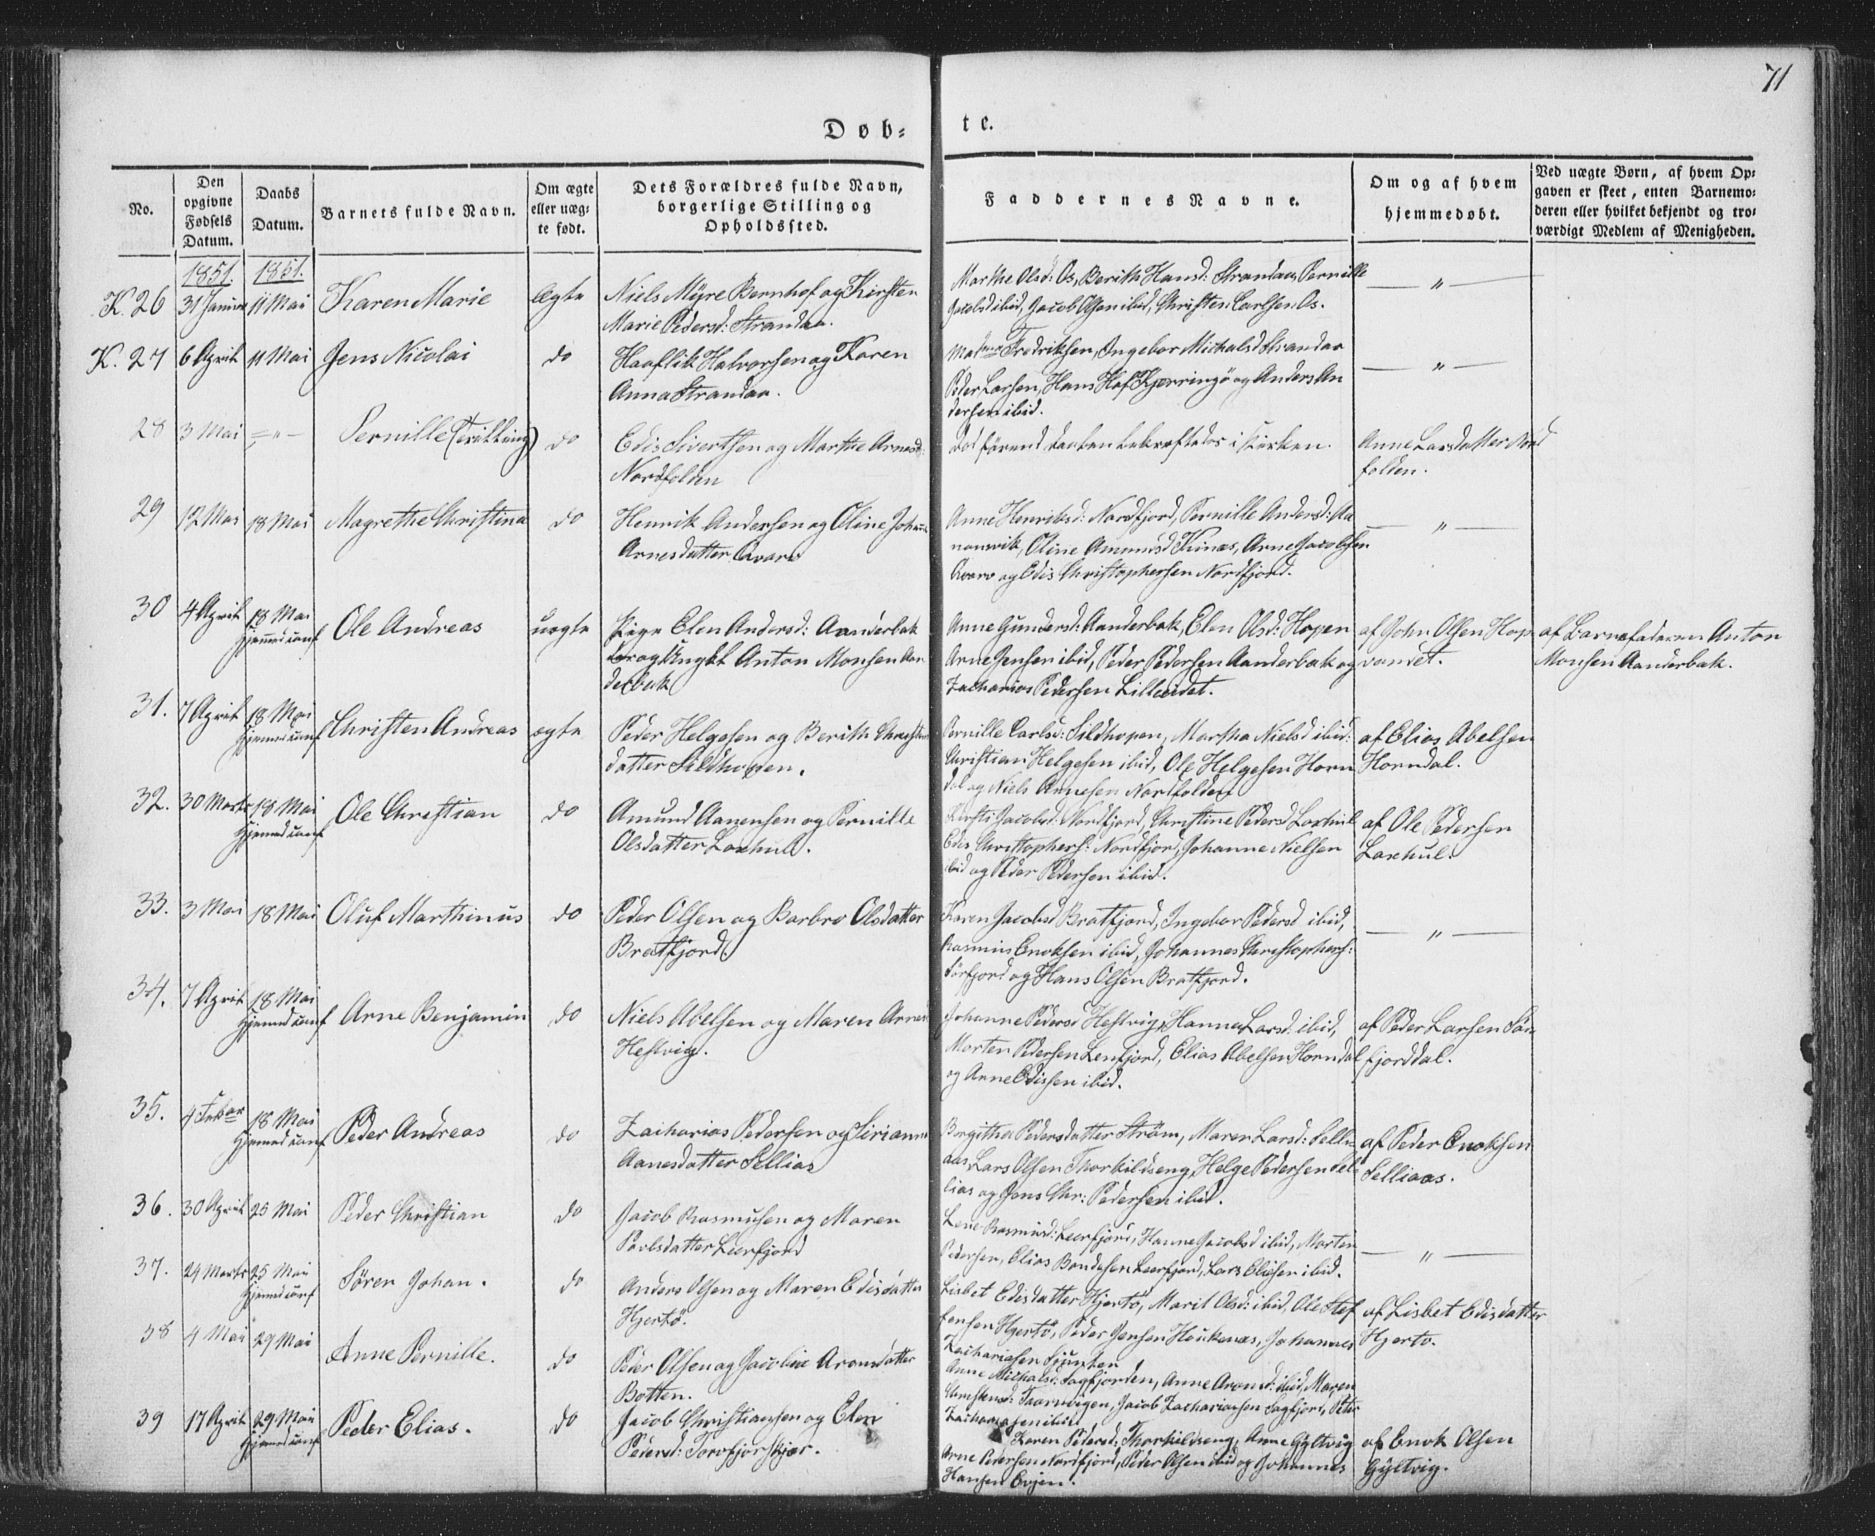 71
Døb=
te.
No.
Den opgivne Fødsels Datum.
Daabs Datum.
Barnets fulde Navn.
Om ægte eller uæg= te født.
Dets Forældres fulde Navn, borgerlige Stilling og Opholdssted.
Faddernes Navne.
Om og af hvem hjemmedøbt.
Ved uægte Børn, af hvem Op= gaven er skeet, enten Barnemo= deren eller hvilket bekjendt og tro= værdigt Medlem af Menigheden.
1851. 1851.
K. 26 31 Januar 11 Mai Karen Marie Ægte Niels Myre Bernhof og Kirsten
Marie Pedersd: Strandaa.
Marthe Olsd: Os, Berith Hansd: Strandaa, Pernille
Jacobsd ibid, Jacob Olsen ibid, Christen Carlsen Os.
— " —
K. 27 6 April 11 Mai Jens Nicolai do Haaflik Halvorsen og Karen
Anna Strandaa.
Fredriksen, Ingebor Michalsd Strandaa
Peder Larsen, Hans Hof Kjerringø og Anders An
dersen ibid.
— " —
28 3 Mai — " — Pernille (Trilling) do Edis Sivertsen og Marthe Arnesd:
Nordfolden
død førend daaben bekræftedes i Kirken.
Anne Larsdatter Nord
folden.
29 12 Mai 18 Mai Magrethe Christina do Henrik Andersen og Oline Johan
Arnesdatter Qvarv
Anne Henriksd: Nordfjord, Pernille Andersd:
Oline Amundsd Trines, Arne Jacobsen
Qvarv og Edis Christophersen Nordfjord.
— " —
30 4 April 18 Mai Hjemmed conf Ole Andreas uægte Pige Elen Andersd: Aanderbak
og Ungkl Anton Monsen Aan
derbak
Anne Gundersd: Aanderbak, Elen Olsd: Hopen
Arne Jensen ibid, Peder Pedersen Aanderbak og
Zacharias Pedersen Lilleeidet.
af John Olsen Hop
vandet.
af Barnefaderen Anton
Monsen Aanderbak.
31. 7 April 18 Mai Hjemmed conf Christen Andreas ægte Peder Helgesen og Berith Christens
datter Sildhopen.
Pernille Carlsd: Sildhopen, Martha Nielsd ibid:
Christian Helgesen ibid, Ole Helgesen Horn
dal og Niels Arnesen Nordfolden
af Elias Abelsen
Horndal.
32. 30 Marts 18 Mai Hjemmed conf Ole Christian do Amund Aanensen og Pernille
Olsdatter Laxhul.
Kirsti Jacobsd: Nordfjord, Christine Pedersd Laxhul
Edis Christophers: Nordfjord, Johanne Nielsen
ibid og Peder Pedersen ibid.
af Ole Pedersen
Laxhul.
33. 3 Mai 18 Mai Oluf Marthinus do Peder Olsen og Barbro Olsdatter
Bratfjord.
Karen Jacobsd Bratfjord, Ingebor Pedersd ibid,
Rasmus Enoksen ibid, Johannes Christophers:
Sørfjord og Hans Olsen Bratfjord.
— " —
34. 7 April 18 Mai Hjemmed conf Arne Benjamin do Niels Abelsen og Maren Arnes
Hestvig.
Johanne Pedersd Hestvig, Hanne Larsd: ibid,
Morten Pedersen Leerfjord, Elias Abelsen Horndal
og Arne Edissen ibid.
af Peder Larsen Sør
fjorddal.
35. 4 Febar 18 Mai Hjemmed conf Peder Andreas do Zacharias Pedersen og Sirianna
Aanesdatter Selliaas
Birgitha Pedersdatter Strøm, Maren Larsd: Selli
aas, Lars Olsen Thorkildseng, Helge Pedersen Sel
lias og Jens Chr: Pedersen ibid.
af Peder Enoksen
Selliaas.
36. 30 April 25 Mai Peder Christian do Jacob Rasmusen og Maren
Povlsdatter Leerfjord
Lene Rasmusd: Leerfjord, Hanne Jacobsd ibid, Morten
Pedersen, Elias Bondesen Leerfjord, Lars Eliasen ibid.
— " —
37. 24 Marts 25 Mai Hjemmed conf Søren Johan. do Anders Olsen og Maren Edisdatter
Hjertø.
Lisbet Edisdatter Hjertø, Marit Olsd: ibid, Ole Stef
fensen Hjertø, Peder Jensen Houkenæs, Johannes
Zachariasen
af Lisbet Edisdatter
Hjertø.
38 4 Mai 29 Mai Anne Pernille. do Peder Olsen og Jacobine Aronsdatter
Botten.
Anne Michalsd: Sagfjorden, Anne Aronsd: ibid, Maren
Christensd: Taarnvigen, Jacob Zachariasen Sagfjord, Peter
Zachariasen ibid
39 17 April 29 Mai Hjemmed conf Peder Elias. do Jacob Christiansen og Elen
Pedersd: Torvfjorskjær.
Karen Pedersd: Thorkildseng, Anne Gyltvig
Arne Pedersen Nordfjord, Peder Olsen ibid og Johannes
Hansen Evjen.
af Enok Olsen
Gyltvig.